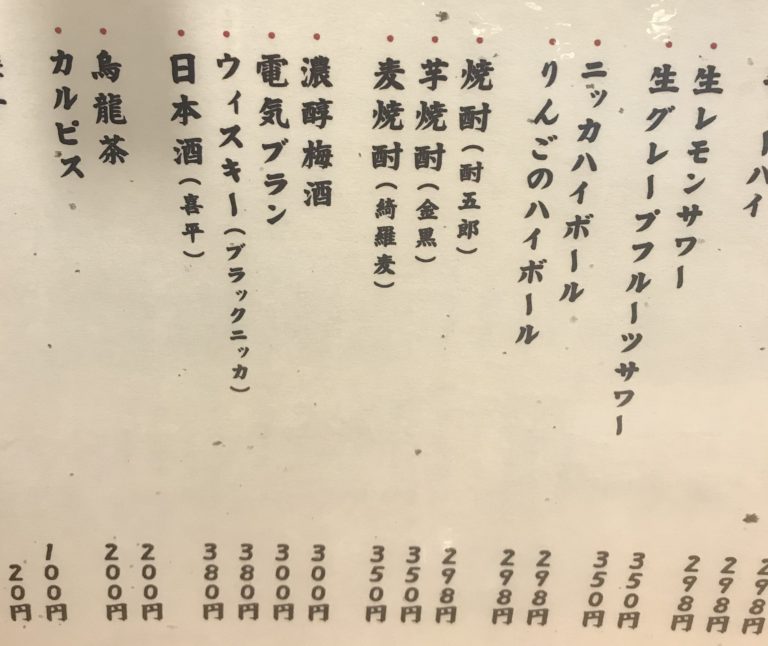 ハイ
生レモンサワー
生グレープフルーツサワー
ニッカハイボール
りんごのハイボール
焼酎(酎五郎)
芋焼酎(金黒)
麦焼酎(綺羅麦)
濃醇梅酒
電気ブラン
ウィスキー(ブラックニッカ)
日本酒(喜平)
烏龍茶
カルピス
298円
298円
298円
350円
350円
298円
298円
298円
350円
350円
300円
300円
380円
380円
200円
200円
100円
20円